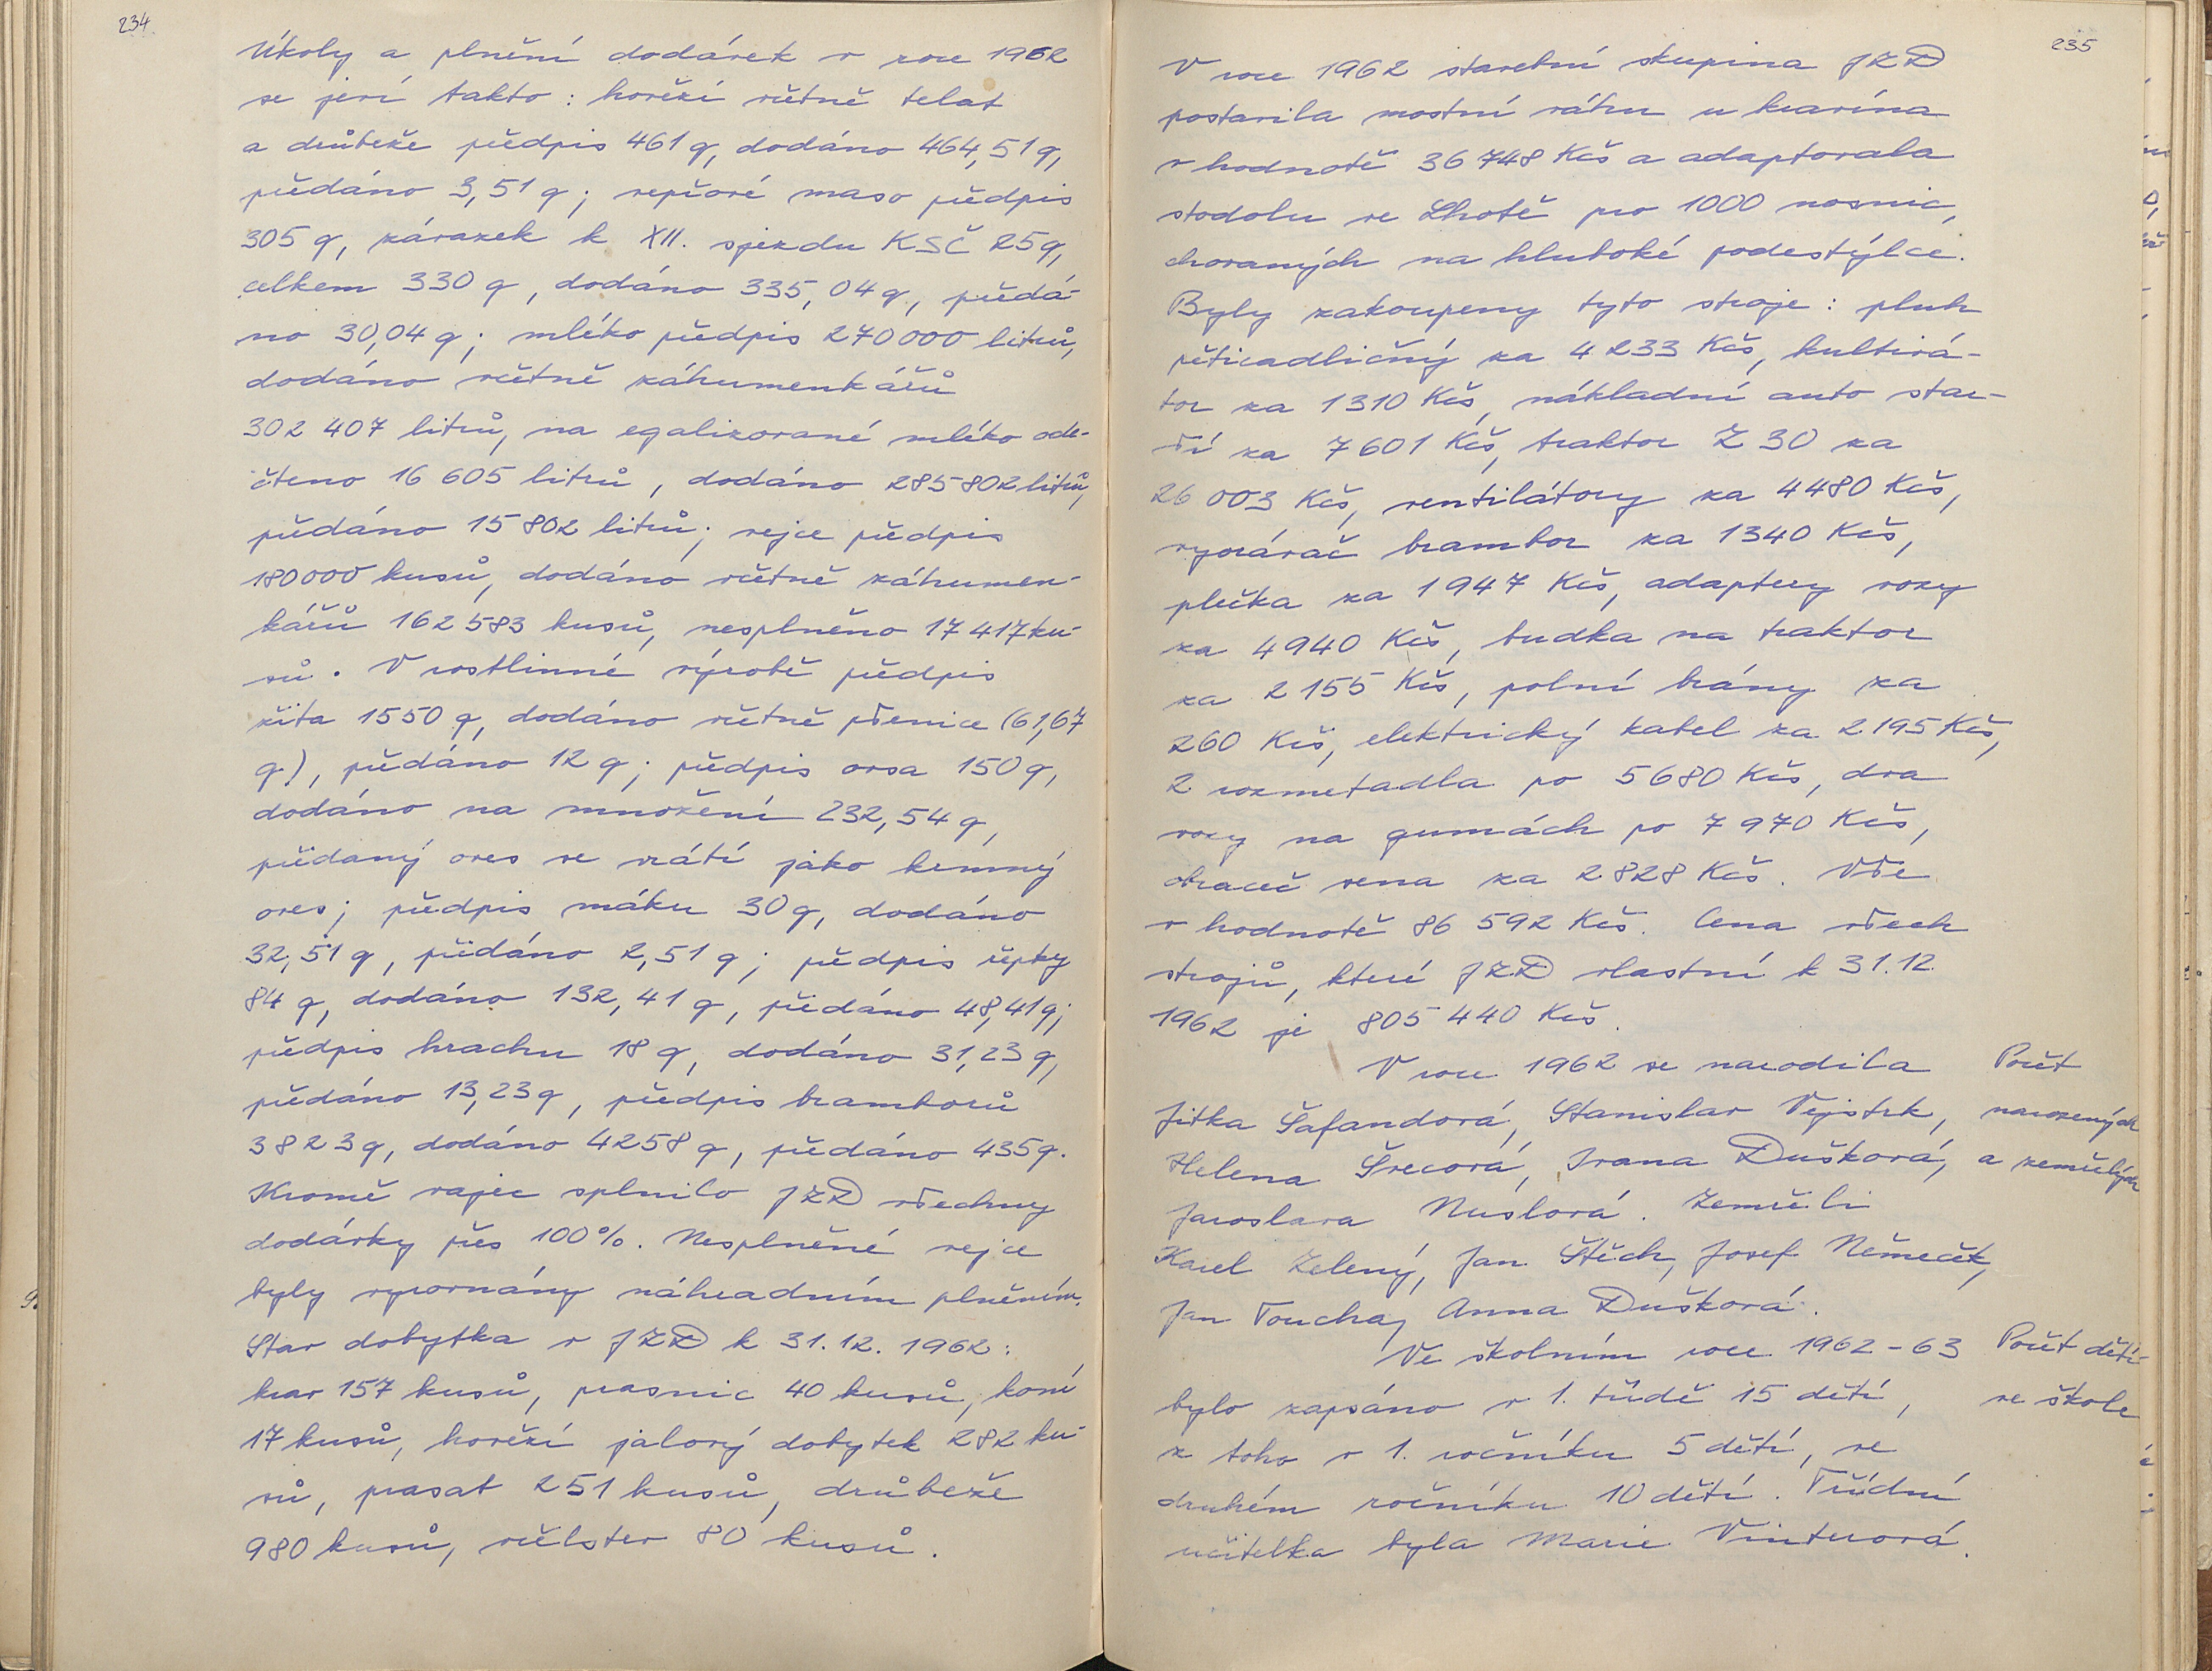 234
Úkoly a plnění dodávek v roce 1962
se jeví takto: hovězí včetně telat
a drůbeže předpis 461 q, dodáno 464,51 q,
předáno 3,51 q; vepřové maso předpis
305 q, závazek k XII. sjezdu KSČ 25 q,
celkem 330 q, dodáno 335,04 q, předá-
no 30,04 q; mléko předpis 270 000 litrů,
dodáno včetně záhumenkářů
302 407 litrů, na egalizované mléko ode-
čteno 16 605 litrů, dodáno 285 802 litrů,
předáno 15 802 litrů; vejce předpis
180 000 kusů, dodáno včetně záhumen-
kářů 162 583 kusů, nesplněno 17 417 ku-
sů. V rostlinné výrobě předpis
žita 1550 q, dodáno včetně pšenice (61,67
q), předáno 12 q; předpis ovsa 150 q,
dodáno na množení 232,54 q,
předaný oves se vrátí jako krmný
oves; předpis máku 30 q, dodáno
32,51 q, předáno 2,51 q; předpis řepky
84 q, dodáno 132,41 q, předáno 48,41 q;
předpis hrachu 18 q, dodáno 31,23 q,
předáno 13,23 q, předpis bramborů
3823 q, dodáno 4258 q, předáno 435 q.
Kromě vajec splnilo JZD všechny
dodávky přes 100%. Nesplněné vejce
byly vyrovnány náhradním plněním.
Stav dobytka v JZD k 31.12. 1962:
krav 157 kusů, prasnic 40 kusů, koní
17 kusů, hovězí jalový dobytek 282 ku-
sů, prasat 251 kusů, drůbeže
980 kusů, včelstev 80 kusů.
235
V roce 1962 stavební skupina JZD
postavila mostní váhu u kravína
v hodnotě 36 748 Kčs a adaptovala
stodolu ve Lhotě pro 1000 nosnic,
chovaných na hluboké podestýlce.
Byly zakoupeny tyto stroje: pluh
pětiradličný za 4 233 Kčs, kultivá-
tor za 1310 Kčs, nákladní auto star-
ší za 7 601 Kčs, traktor Z 30 za
26 003 Kčs, ventilátory za 4480 Kčs,
vyorávač brambor za 1340 Kčs,
plečka za 1947 Kčs, adaptery vozy
za 4940 Kčs, budka na traktor
za 2155 Kčs, polní brány za
260 Kčs, elektrický kabel za 2195 Kčs,
2 rozmetadla po 5680 Kčs, dva
vozy na gumách po 7970 Kčs,
obraceč sena za 2828 Kčs. Vše
v hodnotě 86 592 Kčs. Cena všech
strojů, které JZD vlastní k 31.12.
1962 je 805 440 Kčs.
V roce 1962 se narodila
Jitka Šafandová, Stanislav Vejstrk,
Helena Švecová, Ivana Dušková,
Jaroslava Nuslová. Zemřeli
Karel Zelený, Jan Štěch, Josef Němeček,
Jan Toucha, Anna Dušková.
Počet
narozených
a zemřelých
Ve školním roce 1962-63
bylo zapsáno v 1. třídě 15 dětí,
z toho v 1. ročníku 5 dětí, ve
druhém ročníku 10 dětí. Třídní
učitelka byla Marie Vinterová.
Počet dětí
ve škole